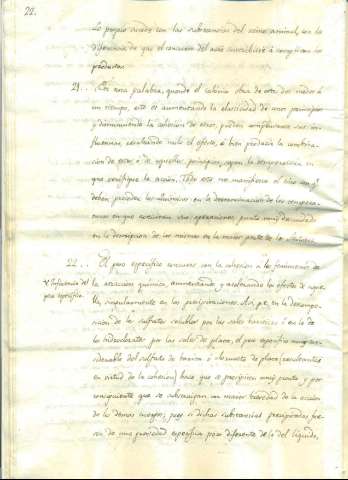 22.
Lo propio sucede con las substancias del reino animal, con la
diferencia de que el concurso del aire contribuye á corromper los
productos.
21. En una palabra, quando el calórico obra de estos dos modos á
un tiempo, esto es aumentando la elasticidad de unos principios
y disminuyendo la cohesion de otros, pueden compensarse sus in-
fluencias, resultando nulo el efecto, ó bien producir la combina-
cion de estos, ó de aquellos principios, segun la temperatura en
que se verifique la accion. Todo esto nos manifiesta el tino con que
deben proceder los Químicos en la determinacion de las tempera-
turas en que executan sus operaciones, punto muy descuidado
en la descripcion de las mismas en la mayor parte de los
22.. El peso específico concurre con la cohesion á los fenómenos de
Influencia del la atraccion química, aumentando y acelerando los efectos de aque-
peso específico. lla, singularmente en las precipitaciones. Así, pe, en la descompo-
sicion de los sulfatos solubles por las sales baríticas ó en la de
los hidrocloratos por las sales de plata, el peso específico muy con-
siderable del sulfato de barita ó cloruro de plata (resultantes
en virtud de la cohesion) hace que se precipiten muy pronto y por
consiguiente que se substraigan con mayor brevedad de la accion
de los demas cuerpos; pues si dichas substancias precipitadas fue-
sen de una gravedad específica poco diferente de la del líquido,